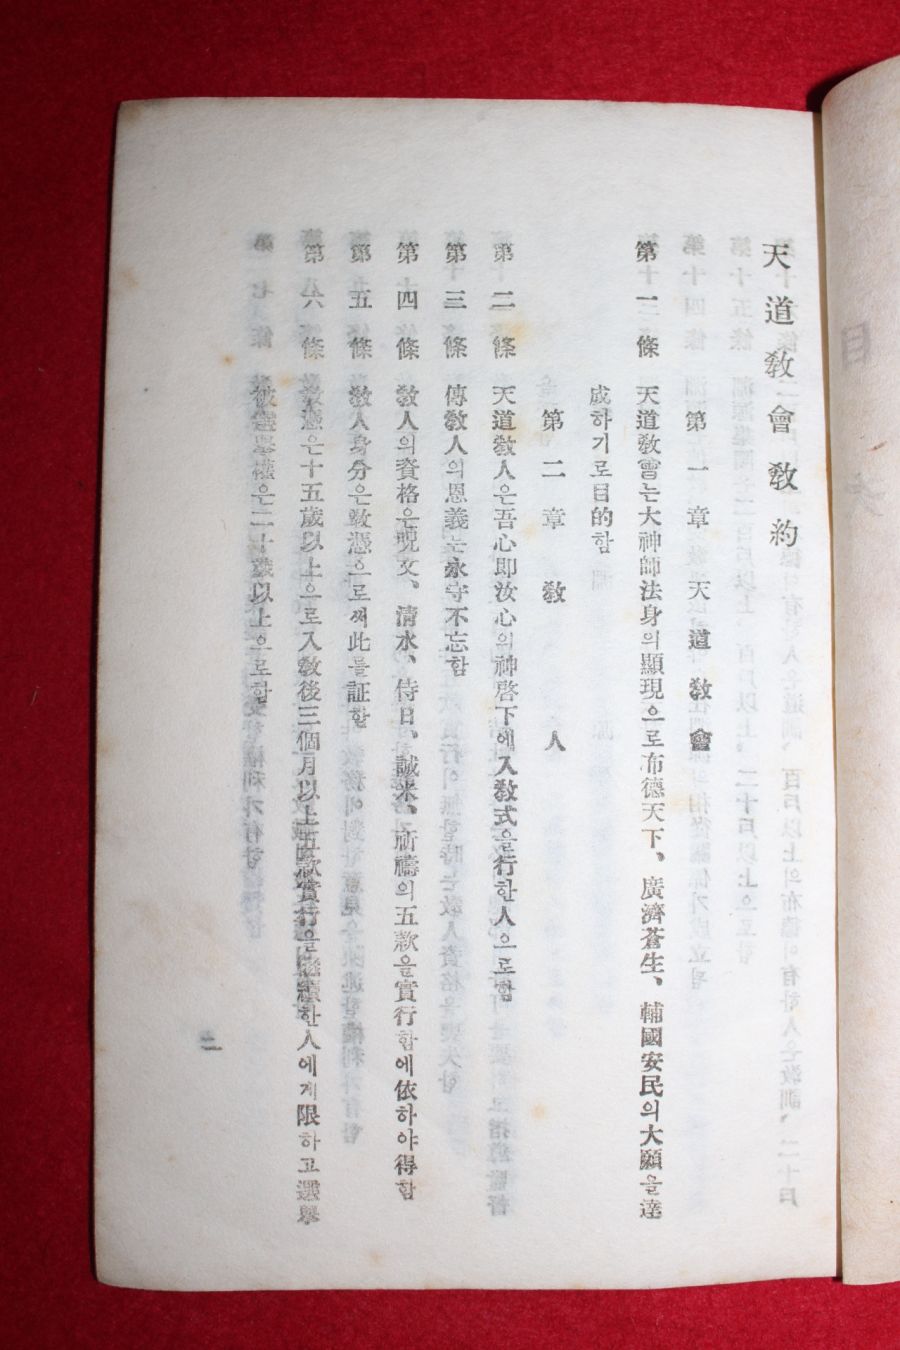 天道敎會敎約
第一章 天道敎會
第一條 天道敎會는大神師法身의顯現으로布德天下、廣濟蒼生、輔國安民의大願을達
成하기로目的함
第二章 敎人
第二條 天道敎人은吾心即汝心의神啓下에入敎式을行한人으로함
第三條 傳敎人의恩義는永守不忘함
第四條 敎人의資格은呪文、清水、侍日、誠米、祈禱의五款을實行함에依하야得함
第五條 敎人身分은敎憑으로써此를証함
第六條 敎憑은十五歲以上으로入敎後三個月以上五款實行을繼續한人에게限하고選擧
被選擧權은二十歲以上으로함